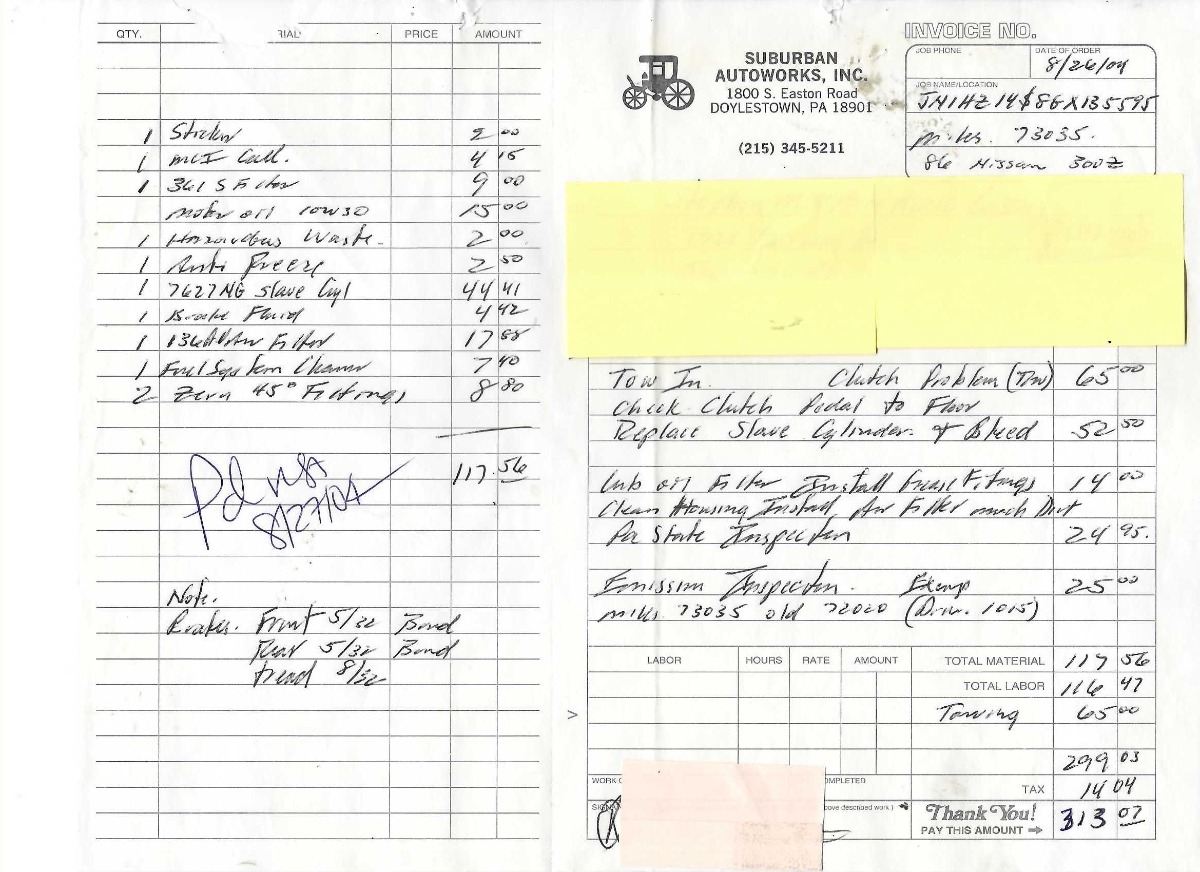 QTY. RIAL PRICE AMOUNT
1 Sticker 2 00
1 MCI Call. 4 15
1 361 S Filter 9 00
Motor oil 10W30 15 00
1 Hazardous Waste. 2 00
1 Anti Freeze 2 50
1 7627NG Slave Cyl 44 41
1 Brake Fluid 4 42
1 136 Air Filter 17 88
1 Fuel System Cleaner 7 40
2 Zern 45° Fittings 8 80
117.56
Pd
8/27/04
Note.
Brakes. Front 5/32 Bond
Rear 5/32 Bond
tread 8/32
SUBURBAN
AUTOWORKS, INC.
1800 S. Easton Road
DOYLESTOWN, PA 18901
(215) 345-5211
INVOICE NO.
JOB PHONE DATE OF ORDER
8/26/04
JOB NAME/LOCATION
JN1HZ14S8GX135595
miles. 73035.
86 Nissan 300Z
Tow In. Clutch Problem (Tow) 65 00
Check Clutch Pedal to Floor
Replace Slave Cylinder & Bleed 52 50
Lub oil Filter Install Grease Fittings 14 00
Clean Housing Install Air Filter much Dirt
Pa State Inspection 24 95.
Emission Inspection. Exemp 25 00
miles 73035 old 72020 (Driv. 1015)
LABOR HOURS RATE AMOUNT TOTAL MATERIAL 117 56
TOTAL LABOR 116 47
> Towing 65 00
299 03
WORK O OMPLETED TAX 14 04
SIGN ove described work.) Thank You!
PAY THIS AMOUNT ⇨ 313 07